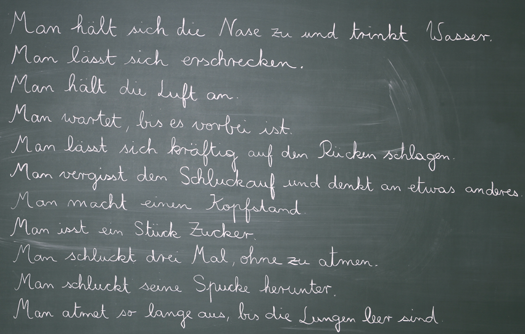 Man hält sich die Nase zu und trinkt Wasser.
Man lässt sich erschrecken.
Man hält die Luft an.
Man wartet, bis es vorbei ist.
Man lässt sich kräftig auf den Rücken schlagen.
Man vergisst den Schluckauf und denkt an etwas anderes.
Man macht einen Kopfstand.
Man isst ein Stück Zucker.
Man schluckt drei Mal, ohne zu atmen.
Man schluckt seine Spucke herunter.
Man atmet so lange aus, bis die Lungen leer sind.